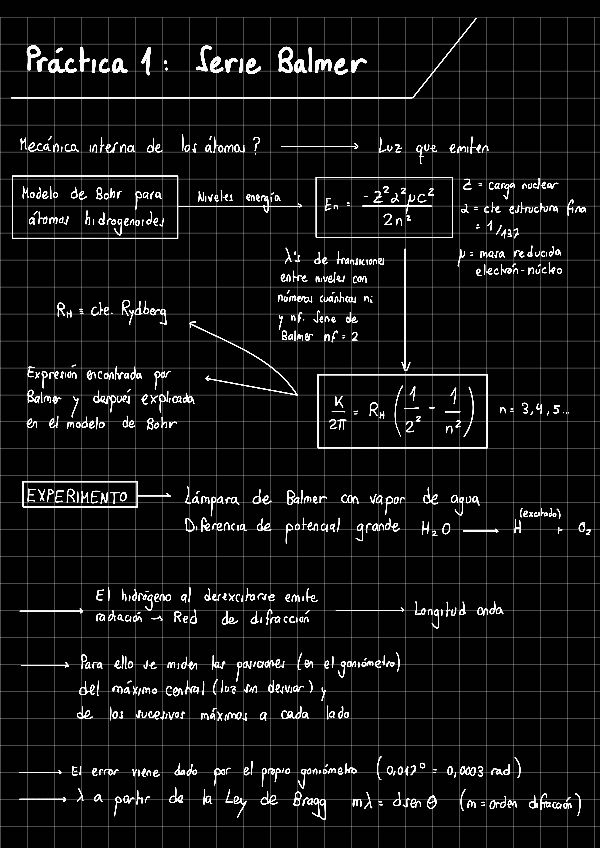 Práctica 1: Serie Balmer
Mecánica interna de los átomos? → Luz que emiten
Modelo de Bohr para
átomos hidrogenoides
Niveles energía
En = -Z²α²μc² / 2n²
Z = carga nuclear
α = cte estructura fina
= 1/137
μ = masa reducida
electrón-núcleo
λ's de transiciones
entre niveles con
números cuánticos ni
y nf. Serie de
Balmer nf = 2
RH ≡ cte. Rydberg
Expresión encontrada por
Balmer y después explicada
en el modelo de Bohr
K/2π = RH (1/2² - 1/n²) n = 3,4,5...
EXPERIMENTO → Lámpara de Balmer con vapor de agua
Diferencia de potencial grande H₂O → H (excitado) + O₂
→ El hidrógeno al desexcitarse emite
radiación → Red de difracción → Longitud onda
→ Para ello se miden las posiciones (en el goniómetro)
del máximo central (luz sin desviar) y
de los sucesivos máximos a cada lado
→ El error viene dado por el propio goniómetro (0,017° = 0,0003 rad)
→ λ a partir de la Ley de Bragg mλ = dsen θ (m = orden difracción)